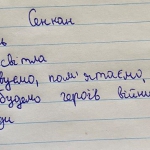 Сенкан
ь
світла
вуємо, пам'ятаємо,
будемо героїв війни
ди